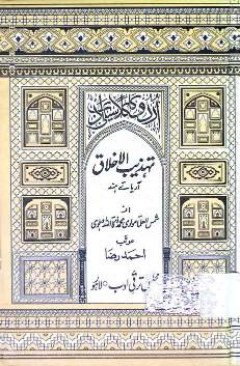 اردو کا کلاسیکی ادب
تہذیب الاخلاق
آریائے ہند
از
شمس العلما مولوی محمد ذکا اللہ دہلوی
مرتبہ
احمد رضا
مجلس ترقی ادب ○ لاہور